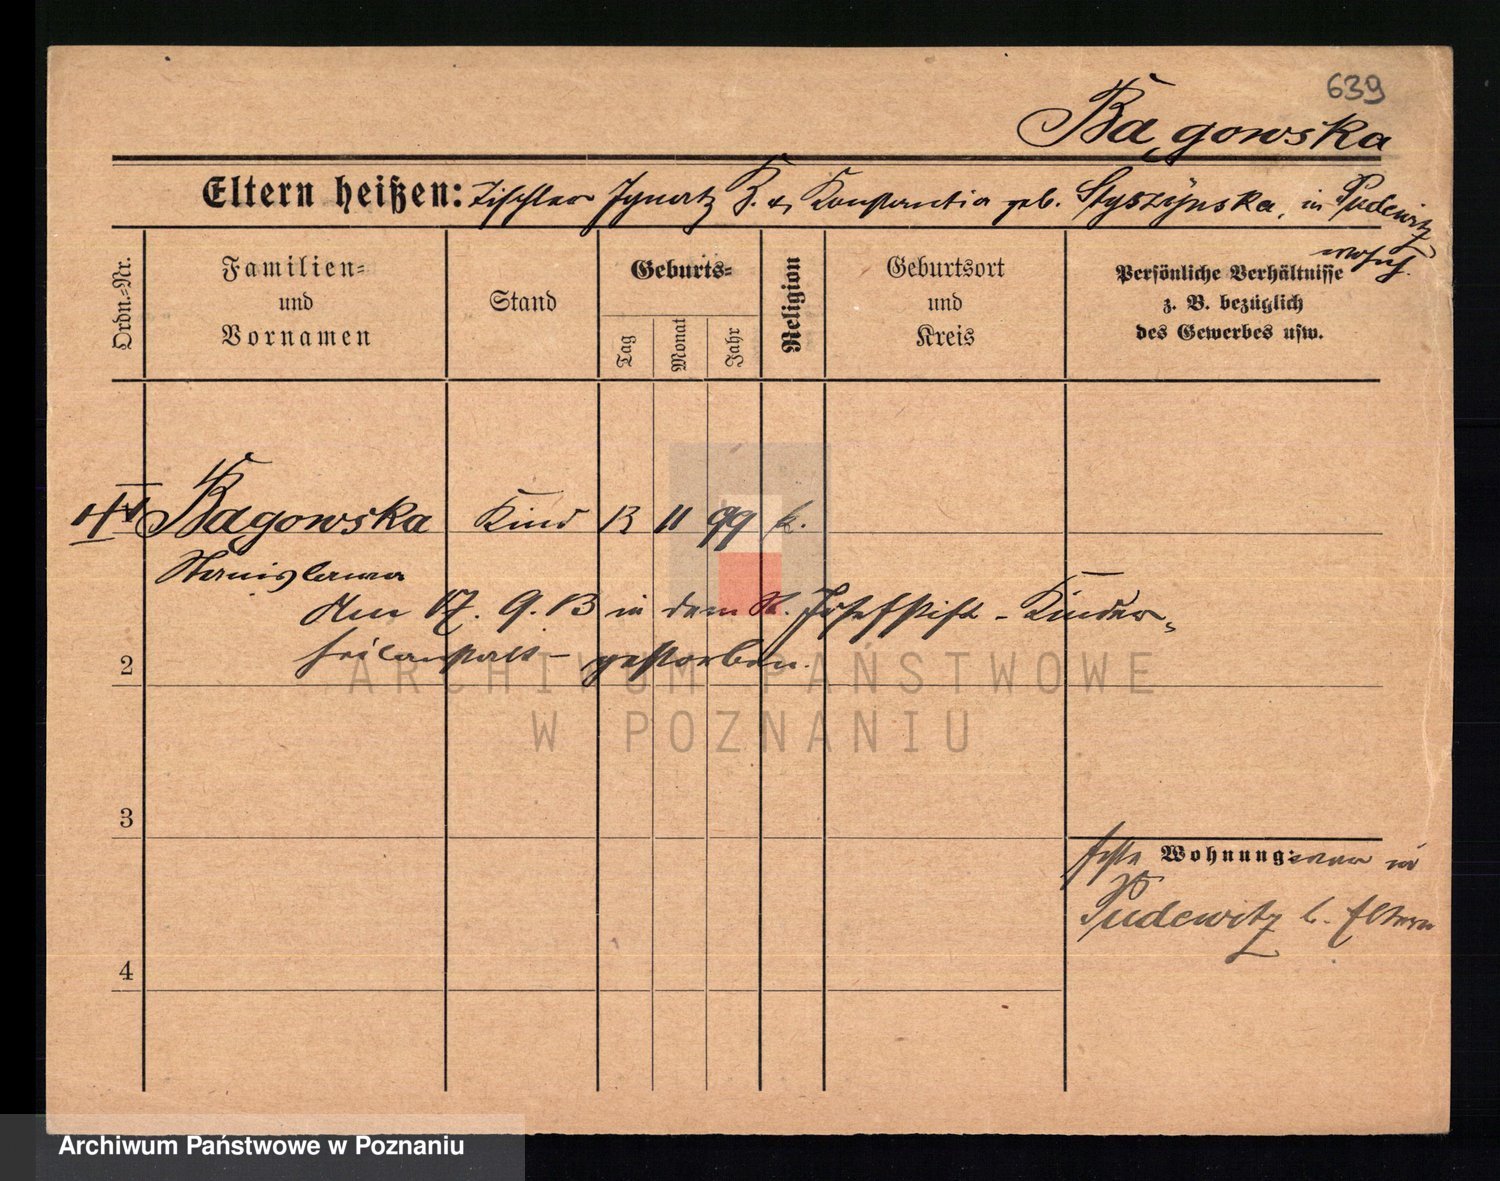 639
Bągowska
Eltern heißen: Tischler Ignatz B. u. Konstantia geb. Styszyńska, in Pudewitz
wohnh.
Ordn.-Nr.
Familien-
und
Vornamen
Stand
Geburts-
Tag
Monat
Jahr
Religion
Geburtsort
und
Kreis
Persönliche Verhältnisse
z. B. bezüglich
des Gewerbes usw.
Bągowska Kind 13 11 99 k.
Stanislawa
Am 17. 9. 13 in dem St. Josefstift - Kinder-
heilanstalt - gestorben.
2
ARCHIWUM PAŃSTWOWE
W POZNANIU
3
feste Wohnung: war in
Pudewitz b. Eltern
4
Archiwum Państwowe w Poznaniu